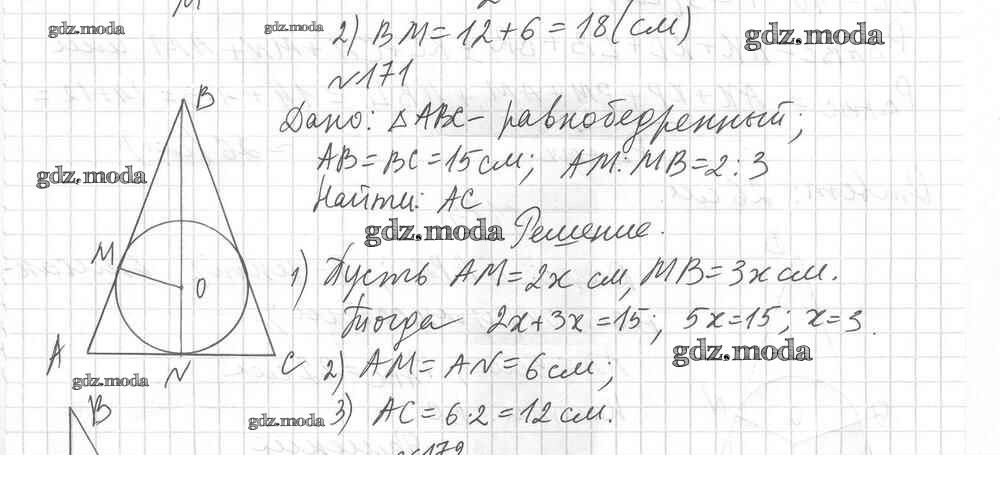 2) BM = 12 + 6 = 18 (см)
№171
Дано: △ABC - равнобедренный;
AB = BC = 15 см; AM : MB = 2 : 3
Найти: AC
Решение.
1) Пусть AM = 2x см, MB = 3x см.
Тогда 2x + 3x = 15; 5x = 15; x = 3.
2) AM = AN = 6 см;
3) AC = 6 · 2 = 12 см.
№172
B
M
O
A
N
C
B
gdz.moda
gdz.moda
gdz.moda
gdz.moda
gdz.moda
gdz.moda
gdz.moda
gdz.moda